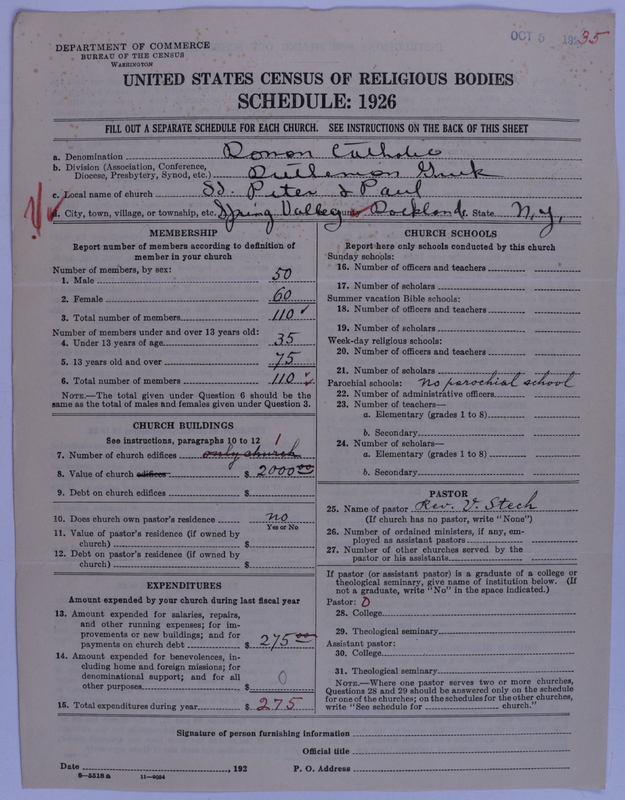 OCT 5 1935
DEPARTMENT OF COMMERCE
BUREAU OF THE CENSUS
WASHINGTON
UNITED STATES CENSUS OF RELIGIOUS BODIES
SCHEDULE: 1926
FILL OUT A SEPARATE SCHEDULE FOR EACH CHURCH. SEE INSTRUCTIONS ON THE BACK OF THIS SHEET
a. Denomination Roman Catholic
b. Division (Association, Conference,
Diocese, Presbytery, Synod, etc.) Ruthenian Greek
c. Local name of church SS. Peter & Paul
d. City, town, village, or township, etc. Spring Valley Rockland State N.Y.
MEMBERSHIP
Report number of members according to definition of
member in your church
Number of members, by sex:
1. Male 50
2. Female 60
3. Total number of members 110
Number of members under and over 13 years old:
4. Under 13 years of age 35
5. 13 years old and over 75
6. Total number of members 110
NOTE.—The total given under Question 6 should be the
same as the total of males and females given under Question 3.
CHURCH BUILDINGS
See instructions, paragraphs 10 to 12
7. Number of church edifices only church 1
8. Value of church edifices $ 2000 00
9. Debt on church edifices $
10. Does church own pastor's residence no
Yes or No
11. Value of pastor's residence (if owned by
church) $
12. Debt on pastor's residence (if owned by
church) $
EXPENDITURES
Amount expended by your church during last fiscal year
13. Amount expended for salaries, repairs,
and other running expenses; for im-
provements or new buildings; and for
payments on church debt $ 275 00
14. Amount expended for benevolences, in-
cluding home and foreign missions; for
denominational support; and for all
other purposes $ 0
15. Total expenditures during year $ 275
CHURCH SCHOOLS
Report here only schools conducted by this church
Sunday schools:
16. Number of officers and teachers
17. Number of scholars
Summer vacation Bible schools:
18. Number of officers and teachers
19. Number of scholars
Week-day religious schools:
20. Number of officers and teachers
21. Number of scholars
Parochial schools: No parochial school
22. Number of administrative officers
23. Number of teachers—
a. Elementary (grades 1 to 8)
b. Secondary
24. Number of scholars—
a. Elementary (grades 1 to 8)
b. Secondary
PASTOR
25. Name of pastor Rev. V. Stech
(If church has no pastor, write "None")
26. Number of ordained ministers, if any, em-
ployed as assistant pastors
27. Number of other churches served by the
pastor or his assistants
If pastor (or assistant pastor) is a graduate of a college or
theological seminary, give name of institution below. (If
not a graduate, write "No" in the space indicated.)
Pastor: 0
28. College
29. Theological seminary
Assistant pastor:
30. College
31. Theological seminary
NOTE.—Where one pastor serves two or more churches,
Questions 28 and 29 should be answered only on the schedule
for one of the churches; on the schedules for the other churches,
write "See schedule for church."
Signature of person furnishing information
Official title
Date , 192 P. O. Address
8—5518 a 11—9024